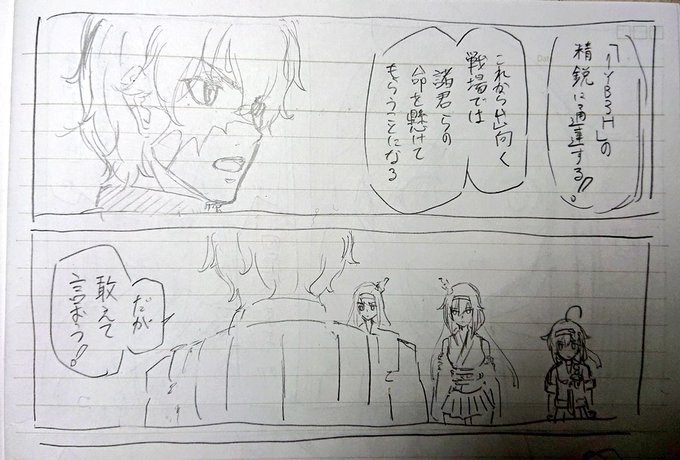 「1YB3H」の
精鋭に通達する!!
これから出向く
戦場では
諸君らの
命を懸けて
もらうことになる
だが
敢えて
言おう!!